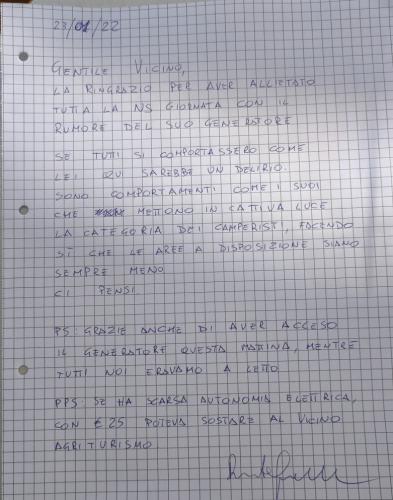 23/01/22
GENTILE VICINO,
LA RINGRAZIO PER AVER ALLIETATO
TUTTA LA NS GIORNATA CON IL
RUMORE DEL SUO GENERATORE
SE TUTTI SI COMPORTASSERO COME
LEI QUI SAREBBE UN DELIRIO.
SONO COMPORTAMENTI COME I SUOI
CHE METTONO IN CATTIVA LUCE
LA CATEGORIA DEI CAMPERISTI, FACENDO
SÌ CHE LE AREE A DISPOSIZIONE SIANO
SEMPRE MENO
CI PENSI
PS: GRAZIE ANCHE DI AVER ACCESO
IL GENERATORE QUESTA MATTINA, MENTRE
TUTTI NOI ERAVAMO A LETTO
PPS SE HA SCARSA AUTONOMIA ELETTRICA,
CON € 25 POTEVA SOSTARE AL VICINO
AGRITURISMO